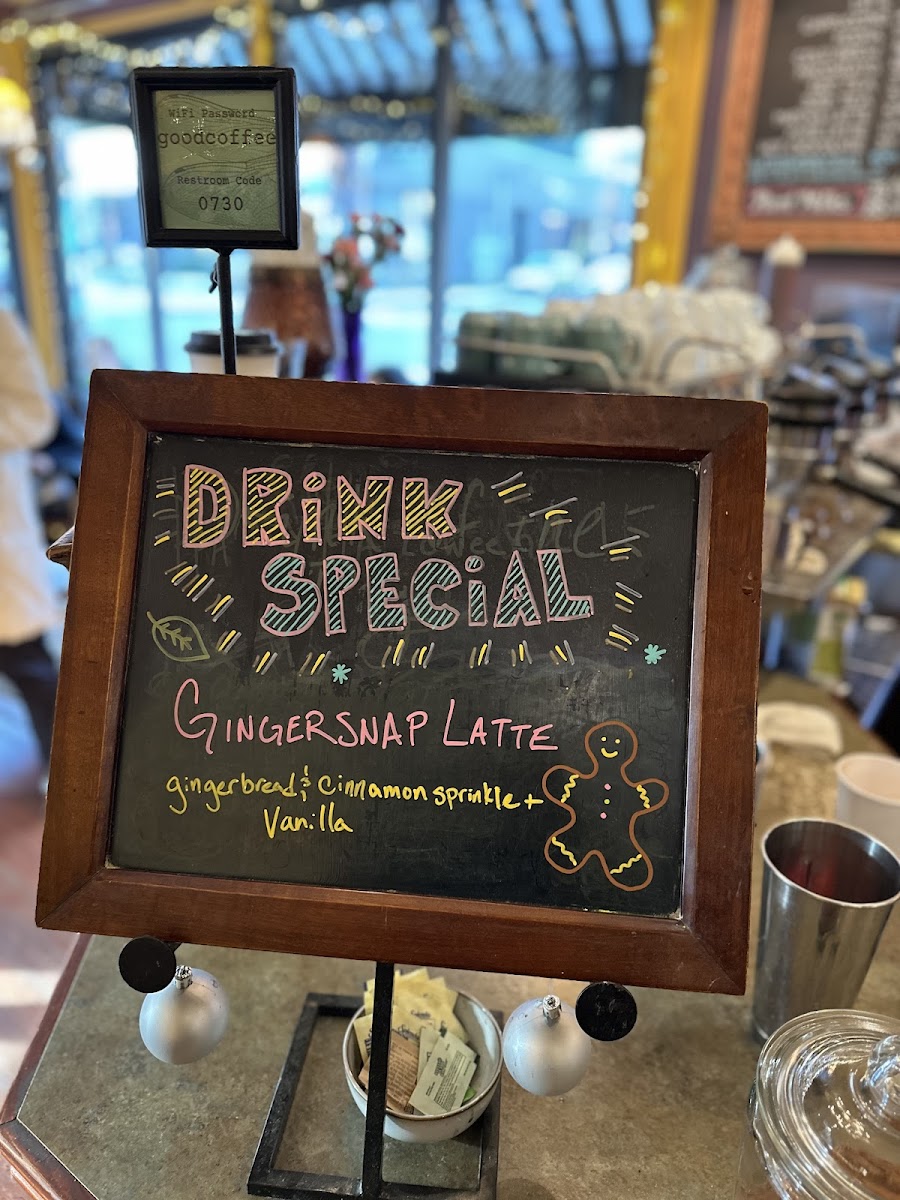 WiFi Password
goodcoffee
Restroom Code
0730
DRiNK
SPECiAL
GINGERSNAP LATTE
gingerbread & cinnamon sprinkle +
Vanilla